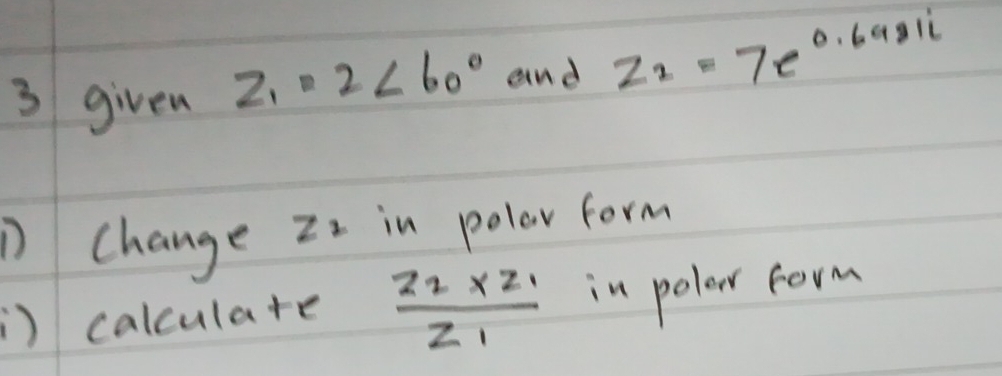 3 given Z₁ = 2∠60° and Z₂ = 7e^0.6981i
i) Change Z₂ in polar form
i) calculate (Z₂ × Z₁)/Z₁ in polar form